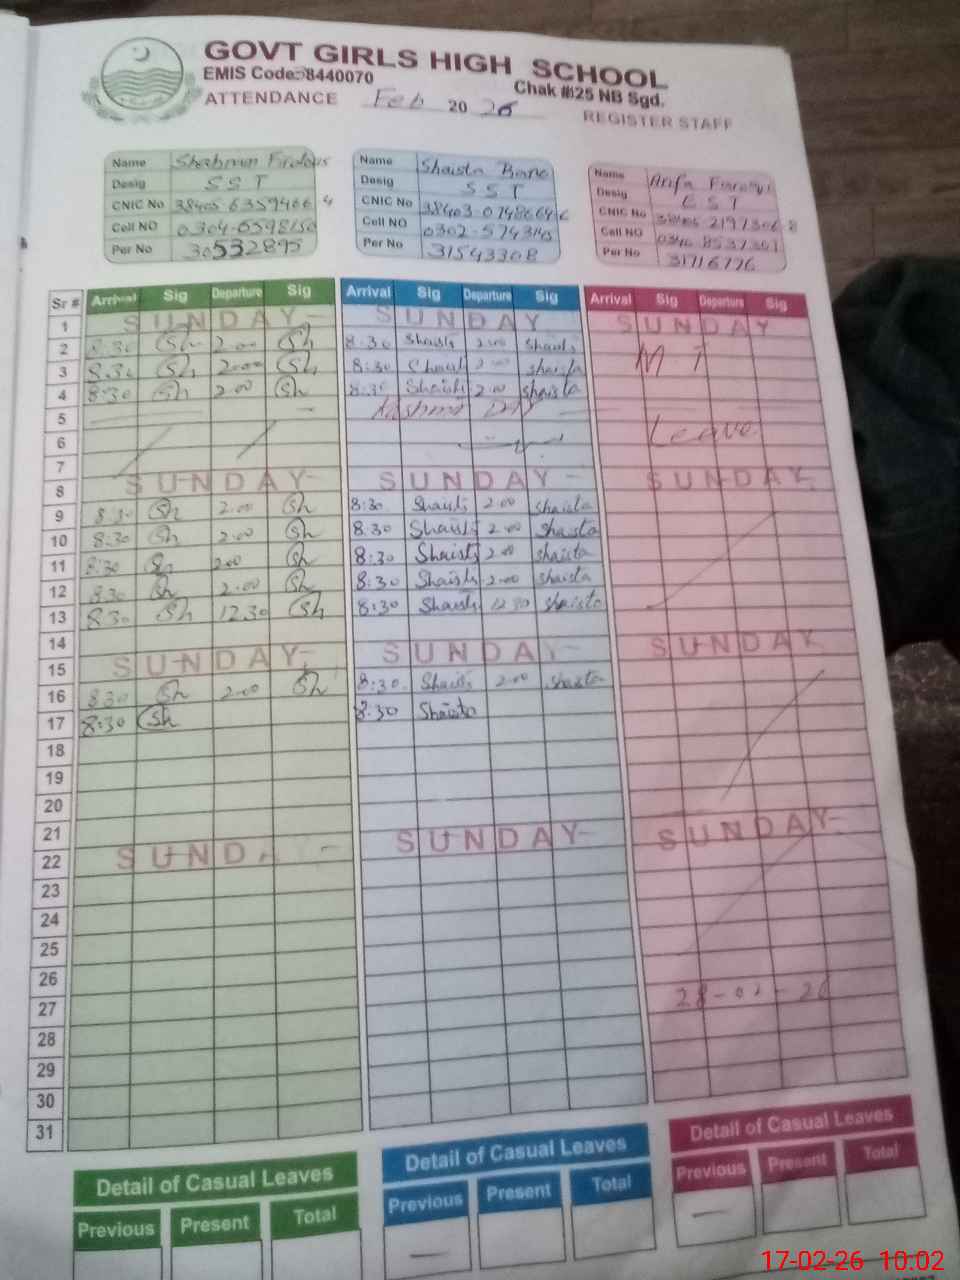 GOVT GIRLS HIGH SCHOOL
EMIS Code:38440070
Chak #825 NB Sgd.
ATTENDANCE Feb 20 26
REGISTER STAFF
Name
Desig SST
CNIC No
Cell NO
Per No 30532895
Name Shaista Bano
Desig SST
CNIC No
Cell NO
Per No 31543308
Name Arifa
Desig EST
CNIC No
Cell NO
Per No 31716776
Sr # Arrival Sig Departure Sig Arrival Sig Departure Sig Arrival Sig Departure Sig
1 SUNDAY SUNDAY SUNDAY
2 8:30 Sh 2:00 Sh 8:30 Shaista 2:00 Shaista M
3 8:30 Sh 2:00 Sh 8:30 2:00 shaista
4 8:30 Sh 2:00 Sh 8:30 Shaista 2:00 shaista
5 Kashmir Day Leave
6
7
8 SUNDAY SUNDAY SUNDAY
9 8:30 Sh 2:00 Sh 8:30 Shaista 2:00 shaista
10 8:30 Sh 2:00 Sh 8:30 Shaista 2:00 shaista
11 8:30 Sh 2:00 Sh 8:30 Shaista 2:00 shaista
12 8:30 Sh 2:00 Sh 8:30 Shaista 2:00 shaista
13 8:30 Sh 12:30 Sh 8:30 Shaista 12:30 shaista
14
15 SUNDAY SUNDAY SUNDAY
16 8:30 Sh 2:00 Sh 8:30 Shaista 2:00 shaista
17 8:30 Sh 8:30 Shaista
18
19
20
21
22 SUNDAY SUNDAY SUNDAY
23
24
25
26
27
28 28-02-26
29
30
31
Detail of Casual Leaves Detail of Casual Leaves Detail of Casual Leaves
Previous Present Total Previous Present Total Previous Present Total
17-02-26 10:02